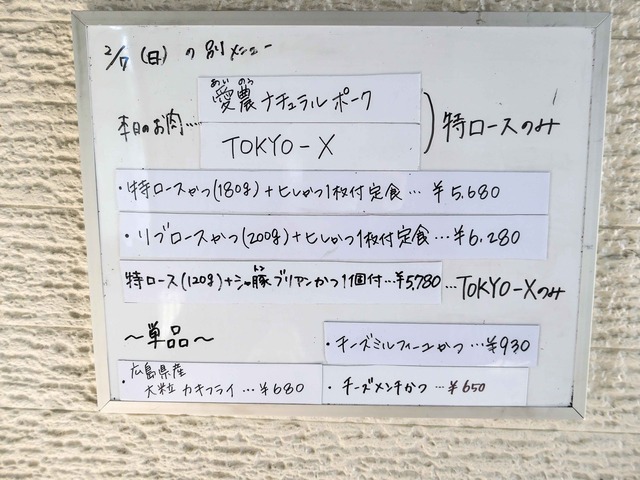 2/7 (日) の 別メニュー
本日のお肉… 愛農ナチュラルポーク
あい のう
TOKYO-X
特ロースのみ
・特ロースかつ(180g)+ヒレかつ1枚付定食…¥5,680
・リブロースかつ(200g)+ヒレかつ1枚付定食…¥6,280
特ロース(120g)+シャ豚ブリアンかつ1個付…¥5,780 …TOKYO-Xのみ
トン
〜単品〜
・チーズミルフィーユかつ…¥930
・広島県産
大粒カキフライ…¥680
・チーズメンチかつ…¥650